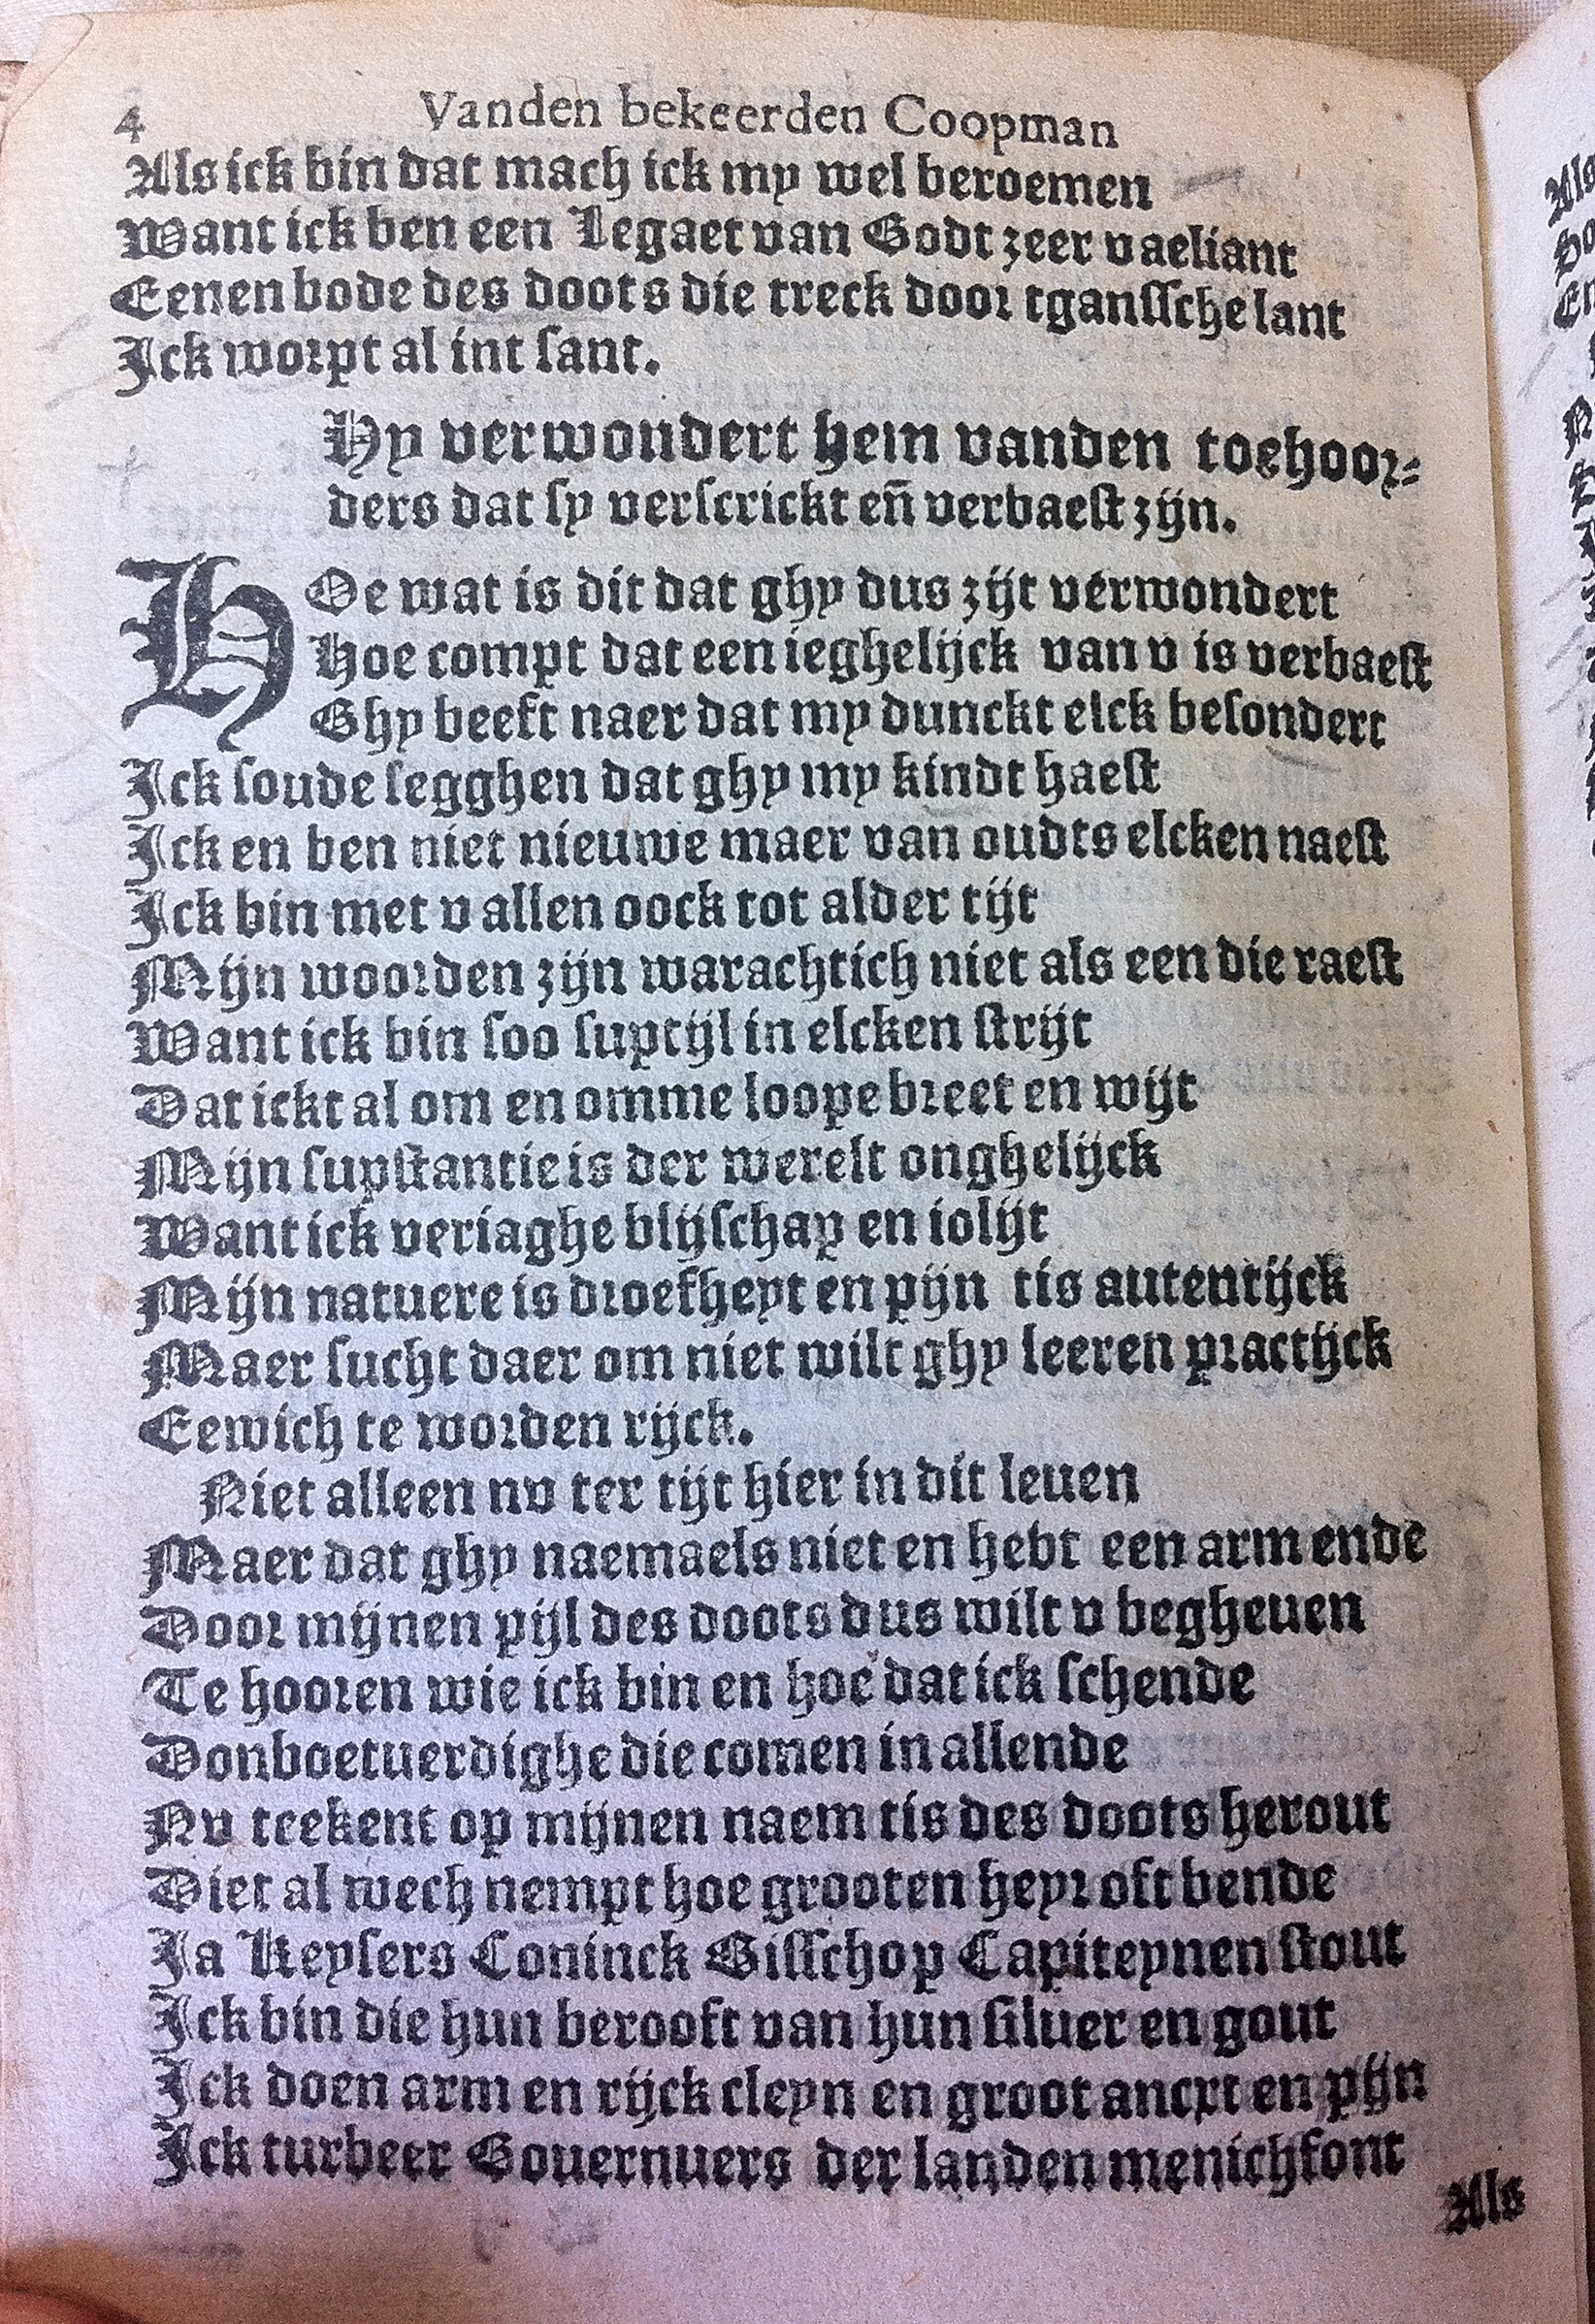 4 Vanden bekeerden Coopman
Als ick bin dat mach ick my wel beroemen
Want ick ben een Legaet van Godt zeer vaeliant
Eenen bode des doots die treck door tganssche lant
Ick worpt al int sant.
Hy verwondert hem vanden toehoor-
ders dat sy verscrickt eñ verbaest zijn.
HOe wat is dit dat ghy dus zijt verwondert
Hoe compt dat een ieghelijck van v is verbaest
Ghy beeft naer dat my dunckt elck besondert
Ick soude segghen dat ghy my kindt haest
Ick en ben niet nieuwe maer van oudts elcken naest
Ick bin met v allen oock tot alder tijt
Mijn woorden zijn warachtich niet als een die raest
Want ick bin soo suptijl in elcken strijt
Dat ickt al om en omme loope breet en wijt
Mijn supstantie is der werelt onghelijck
Want ick veriaghe blijschap en iolijt
Mijn natuere is droefheyt en pijn tis autentijck
Maer sucht daer om niet wilt ghy leeren practijck
Eewich te worden rijck.
Niet alleen nv ter tijt hier in dit leuen
Maer dat ghy naemaels niet en hebt een arm ende
Door mijnen pijl des doots dus wilt v begheuen
Te hooren wie ick bin en hoe dat ick schende
Donboetuerdighe die comen in allende
Nv teekent op mijnen naem tis des doots herout
Diet al wech nempt hoe grooten heyr oft bende
Ja Keysers Coninck Bisschop Capiteynen stout
Ick bin die hun berooft van hun siluer en gout
Ick doen arm en rijck cleyn en groot ancxt en pijn
Ick turbeer Gouernuers der landen menichfont
Als